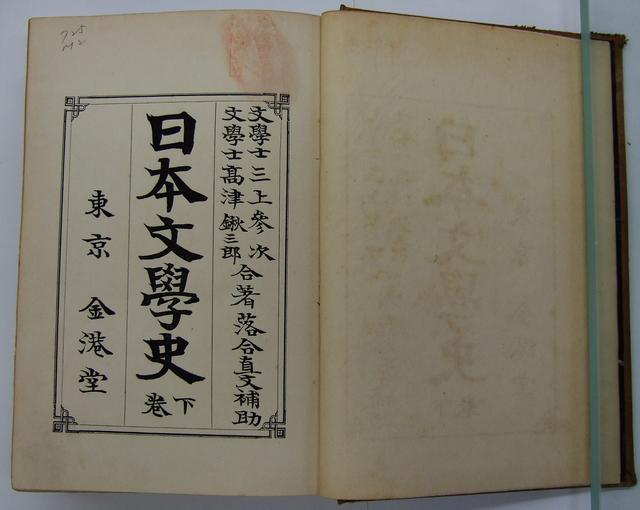 文學士 三上參次
文學士 高津鍬三郎
合著 落合直文補助
日本文學史
下卷
東京 金港堂